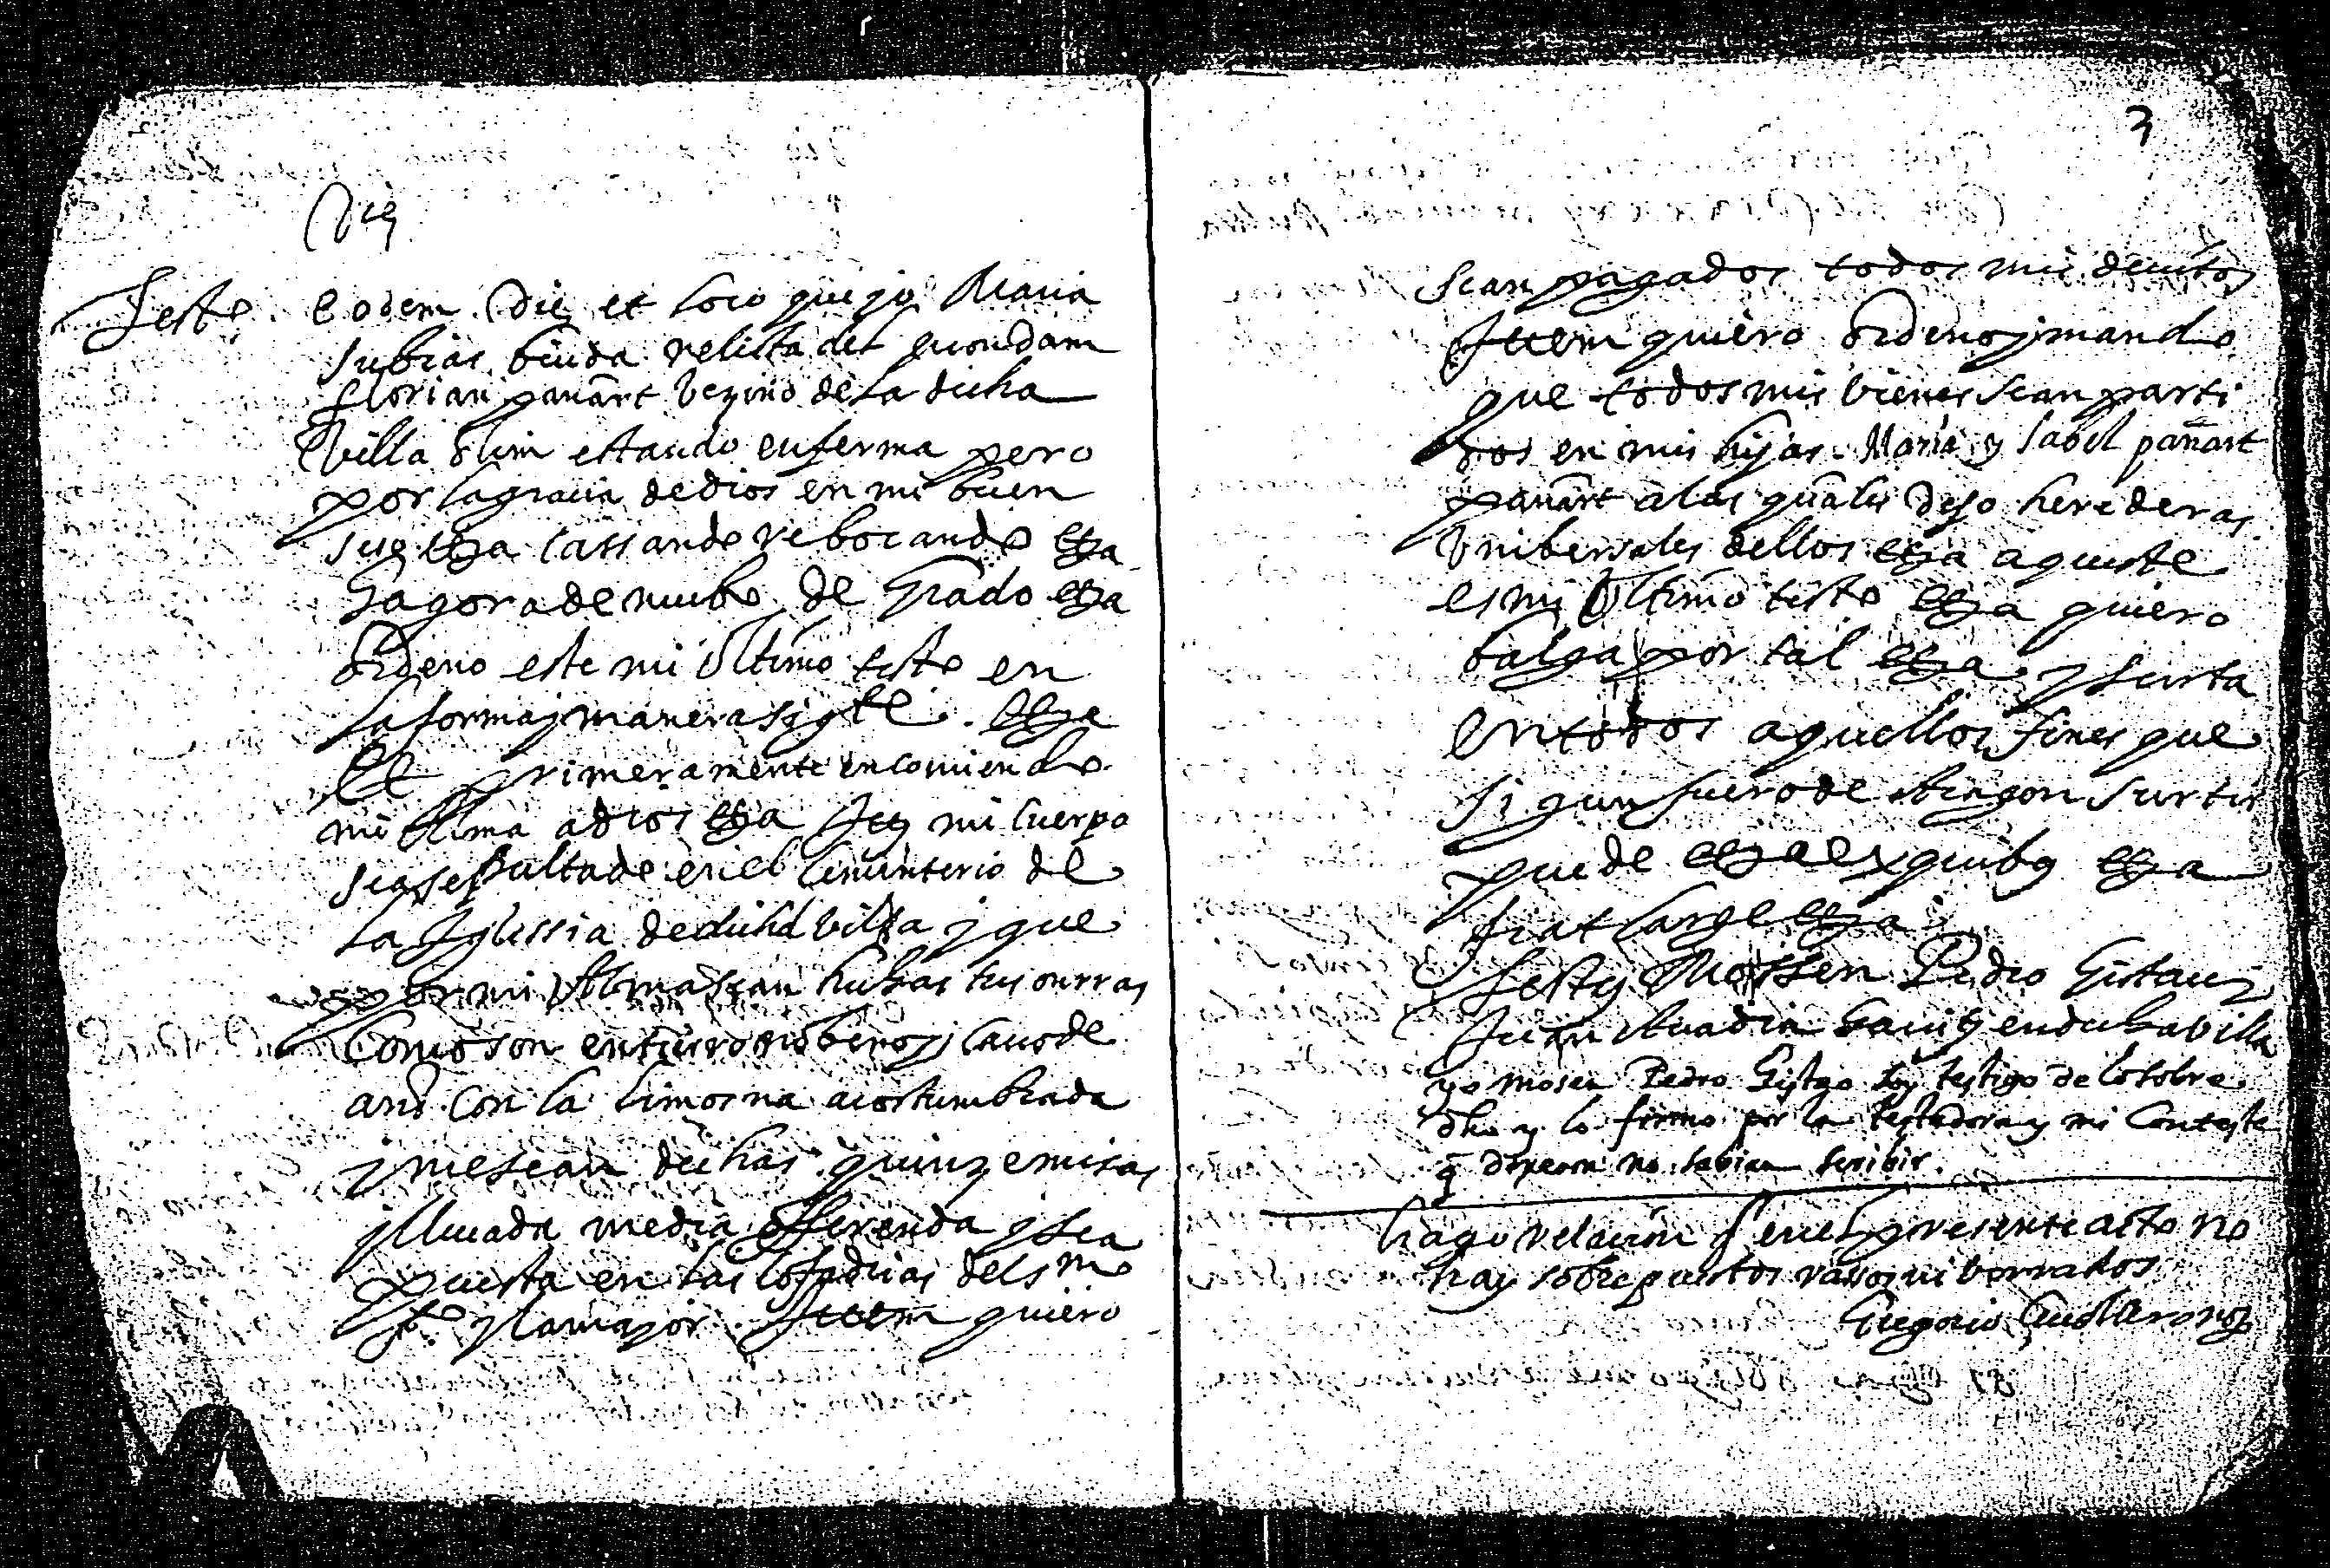 Die
Testo
eodem Die et loco que yo Maria
Subias biuda relicta del quondam
florian panart vezino de la dicha
Villa estando enferma pero
por la gracia de dios en mi buen
seso etza cassando rebocando etza
Gagora de nuebo de Grado etza
ordeno este mi ultimo testo en
la forma y manera sigte. etza
Et primeramente encomiendo
mi Alma a dios etza Itt mi cuerpo
sea sepultado en el ciminterio de
la Iglessia de dicha villa y que
por mi Alma sean hechas
como son entierro nobena y cavo de
año con la limosna acostumbrada
y me sean dichas quinze misas
y lleuada media offerenda y sea
puesta en las cofadrias del smo
y la mayor. Ittem quiero
3
Sean pagados todos mis deuitos
Ittem quiero ordeno y mando
que todos mis bienes sean parti
dos en mis hijas Maria y Isabel panart
panart a las quales dejo herederas
Unibersales dellos etza aqueste
es mi Ultimo testo etza quiero
balga por tal etza y surta
en todos aquellos fines que
sigun fuero de Aragon surtir
puede etza ex quibus etza
fiat large etza
Testes Mossen Pedro Gistau y
Juan en dicha villa
yo mosen Pedro Gistao soy testigo de lo sobre
dho y lo firmo por la testadora y mi Conteste
q dixeron no sabian scribir.
hago relacion q en el presente acto no
hay sobrepuestos rassos ni borrados
Gregorio